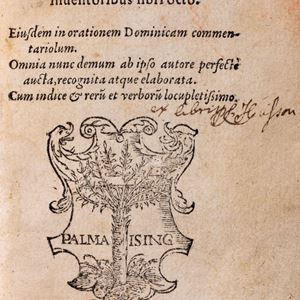 inuentoribus libri octo.
Eiusdem in orationem Dominicam commen-
tariolum.
Omnia nunc demum ab ipso autore perfectè
aucta, recognita atque elaborata.
Cum indice & rerū et verborū locupletissimo.
ex libris
PALMA ISING